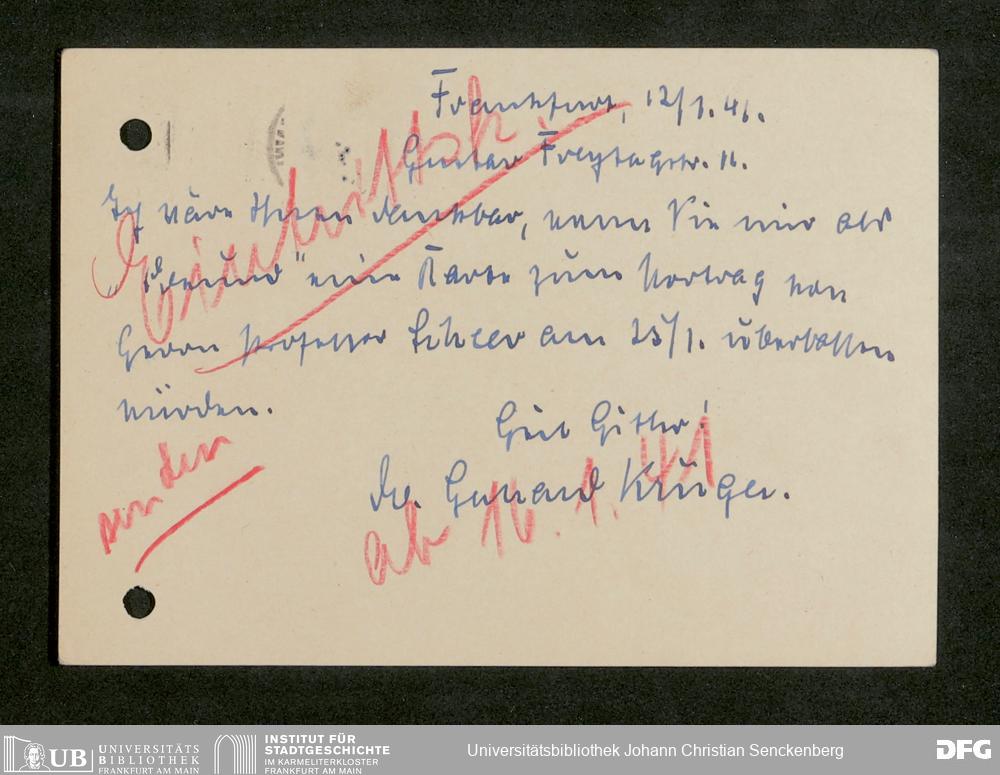 Frankfurt, 12/1.41.
Gustav Freytagstr. 11.
Ich wäre Ihnen dankbar, wenn Sie mir als
„Freund" eine Karte zum Vortrag von
Herrn Professor Scheer am 25/1. überlassen
würden.
Heil Hitler!
Dr. Krüger.
Eintritts K
senden
ab 16.1.41
UB
UNIVERSITÄTS
BIBLIOTHEK
FRANKFURT AM MAIN
INSTITUT FÜR
STADTGESCHICHTE
IM KARMELITERKLOSTER
FRANKFURT AM MAIN
Universitätsbibliothek Johann Christian Senckenberg
DFG